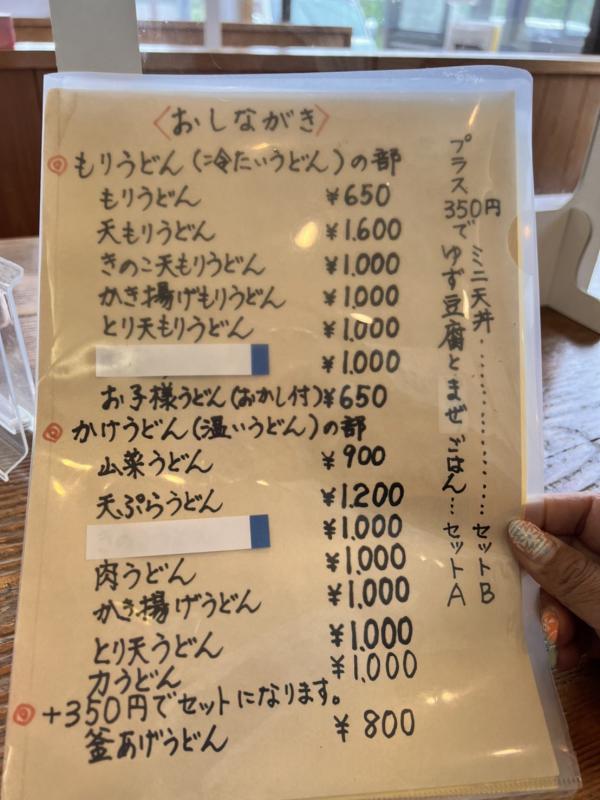 〈おしながき〉
◎もりうどん(冷たいうどん)の部
もりうどん ¥650
天もりうどん ¥1.600
きのこ天もりうどん ¥1.000
かき揚げもりうどん ¥1.000
とり天もりうどん ¥1.000
¥1.000
お子様うどん(おかし付)¥650
◎かけうどん(温いうどん)の部
山菜うどん ¥900
天ぷらうどん ¥1.200
¥1.000
肉うどん ¥1.000
かき揚げうどん ¥1.000
とり天うどん ¥1.000
力うどん ¥1.000
◎+350円でセットになります。
釜あげうどん ¥800
プラス350円で
ゆず豆腐とまぜごはん…セットA
ミニ天丼・・・・・・・・・・・・・・セットB